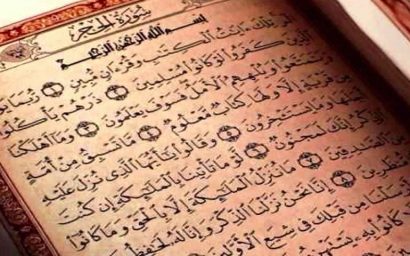 سُورَةُ الحِجْرِ
بِسْمِ اللَّهِ الرَّحْمَٰنِ الرَّحِيمِ
الٓر تِلْكَ ءَايَٰتُ الْكِتَٰبِ وَقُرْءَانٍ مُّبِينٍ ١ رُّبَمَا
الَّذِينَ كَفَرُوا لَوْ كَانُوا مُسْلِمِينَ ٢ ذَرْهُمْ يَأْكُلُوا
وَيَتَمَتَّعُوا وَيُلْهِهِمُ الْأَمَلُ فَسَوْفَ يَعْلَمُونَ ٣ وَمَآ أَهْلَكْنَا
مِن قَرْيَةٍ إِلَّا وَلَهَا كِتَابٌ مَّعْلُومٌ ٤ مَّا تَسْبِقُ مِنْ أُمَّةٍ
أَجَلَهَا وَمَا يَسْتَـْٔخِرُونَ ٥ وَقَالُوا يَٰٓأَيُّهَا الَّذِي نُزِّلَ عَلَيْهِ
الذِّكْرُ إِنَّكَ لَمَجْنُونٌ ٦ لَّوْ مَا تَأْتِينَا بِالْمَلَٰٓئِكَةِ إِن كُنتَ
مِنَ الصَّٰدِقِينَ ٧ مَا نُنَزِّلُ الْمَلَٰٓئِكَةَ إِلَّا بِالْحَقِّ وَمَا كَانُوٓا
مُّنظَرِينَ ٨ إِنَّا نَحْنُ نَزَّلْنَا الذِّكْرَ وَإِنَّا لَهُ لَحَٰفِظُونَ
أَرْسَلْنَا مِن قَبْلِكَ فِي شِيَعِ الْأَوَّلِينَ
كَانُوا بِهِ